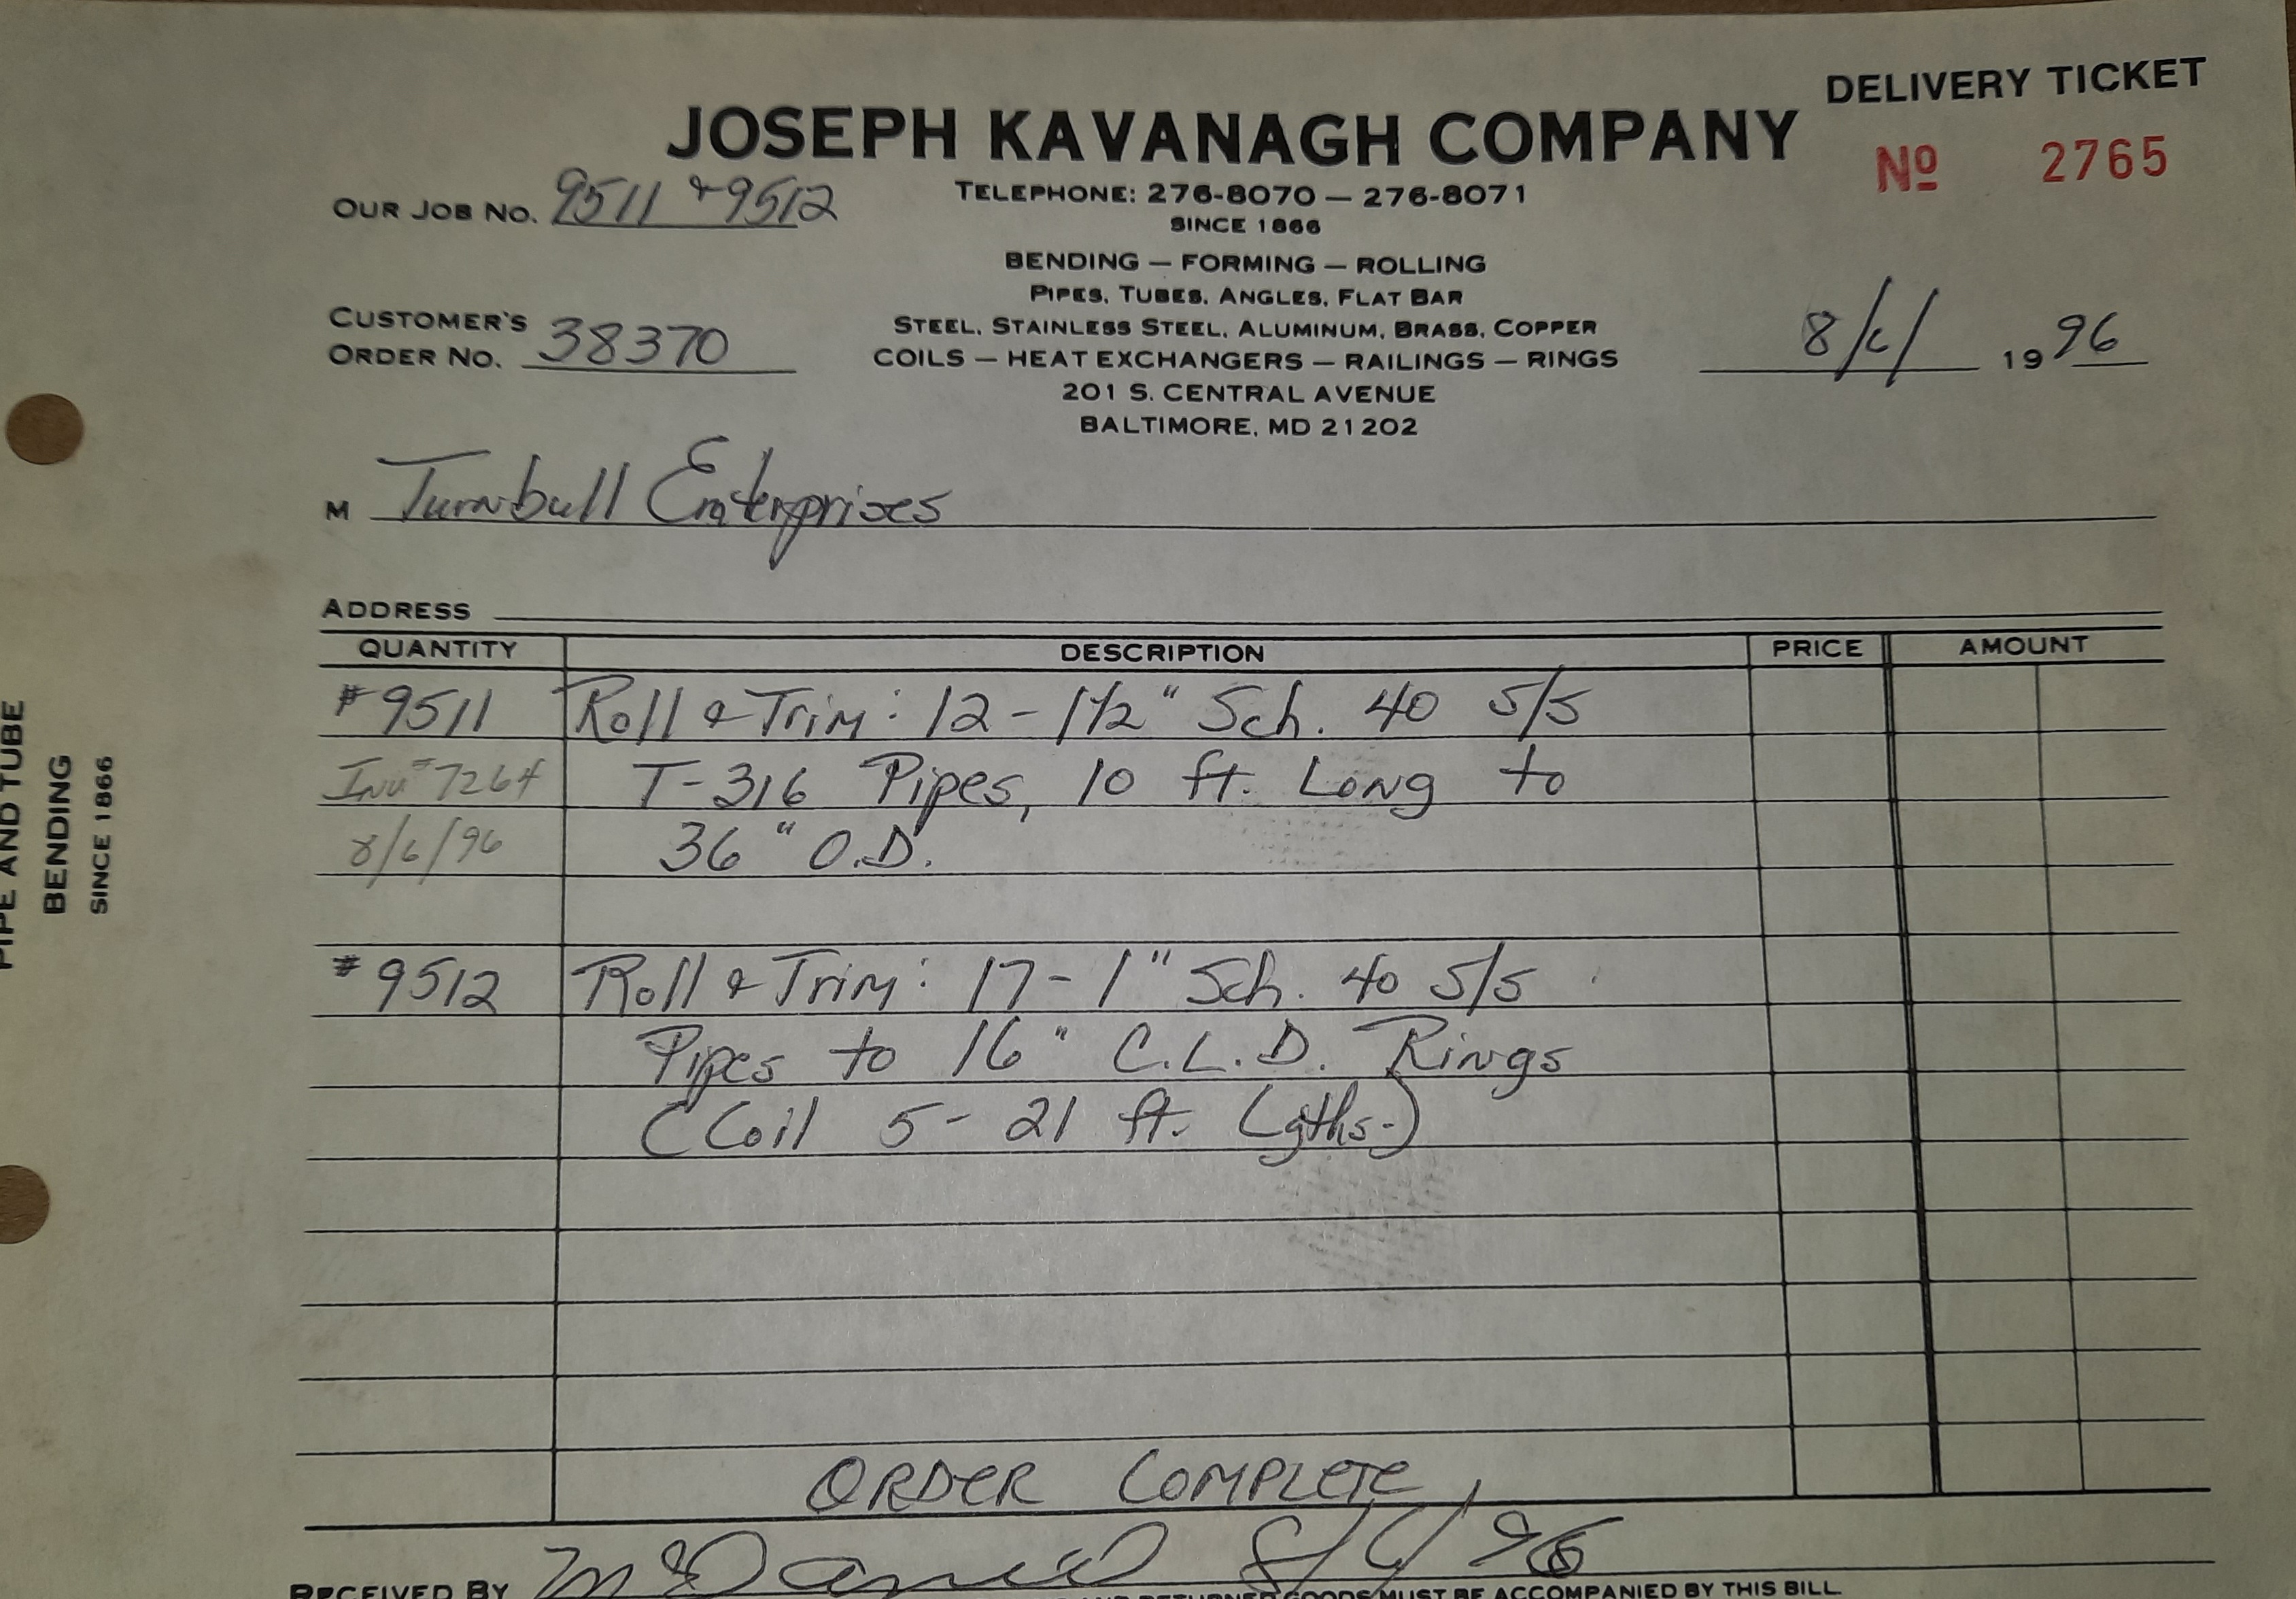 DELIVERY TICKET
JOSEPH KAVANAGH COMPANY
Nº 2765
OUR JOB NO. 9511 & 9512
TELEPHONE: 276-8070 — 276-8071
SINCE 1866
BENDING — FORMING — ROLLING
PIPES, TUBES, ANGLES, FLAT BAR
CUSTOMER'S
ORDER NO. 38370
STEEL, STAINLESS STEEL, ALUMINUM, BRASS, COPPER
COILS — HEAT EXCHANGERS — RAILINGS — RINGS
8/6/ 1996
201 S. CENTRAL AVENUE
BALTIMORE, MD 21202
M Turnbull Enterprises
ADDRESS
QUANTITY DESCRIPTION PRICE AMOUNT
#9511 Roll & Trim: 12 - 1 1/2" Sch. 40 S/S
Inv# 7264 T-316 Pipes, 10 ft. Long to
8/6/96 36" O.D.
#9512 Roll & Trim: 17 - 1" Sch. 40 S/S
Pipes to 16" C.L.D. Rings
(Coil 5 - 21 ft. Lgths.)
ORDER COMPLETE
RECEIVED BY McDaniel 8/6/96
AND RETURNED GOODS MUST BE ACCOMPANIED BY THIS BILL.
PIPE AND TUBE
BENDING
SINCE 1866